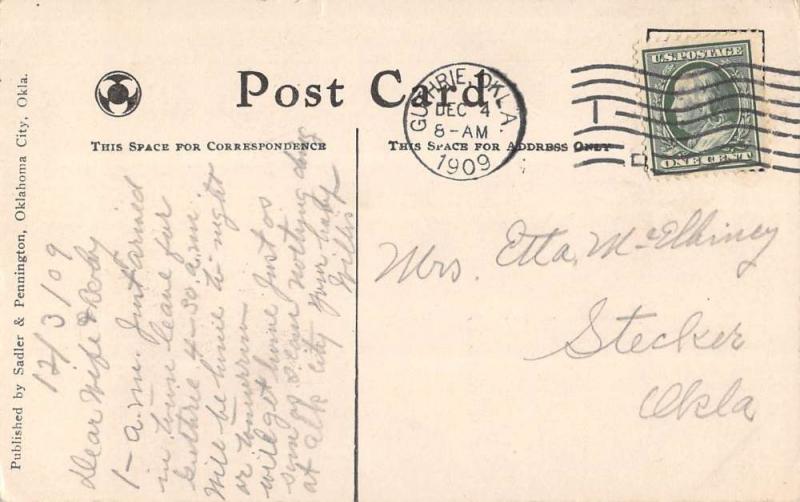 Post Card
THIS SPACE FOR CORRESPONDENCE
THIS SPACE FOR ADDRESS ONLY
Published by Sadler & Pennington, Oklahoma City, Okla.
GUTHRIE, OKLA.
DEC 4
8-AM
1909
U.S. POSTAGE
ONE CENT
12/3/09
Dear Wife & Baby
1-a.m. Just arrived
in town leave for
Guthrie 4-30 a.m.
will be home to night
or tomorrow
will get home Just as
soon as I can nothing doing
at City your hubby
Willis
Mrs. Etta McElhiney
Stecker
Okla